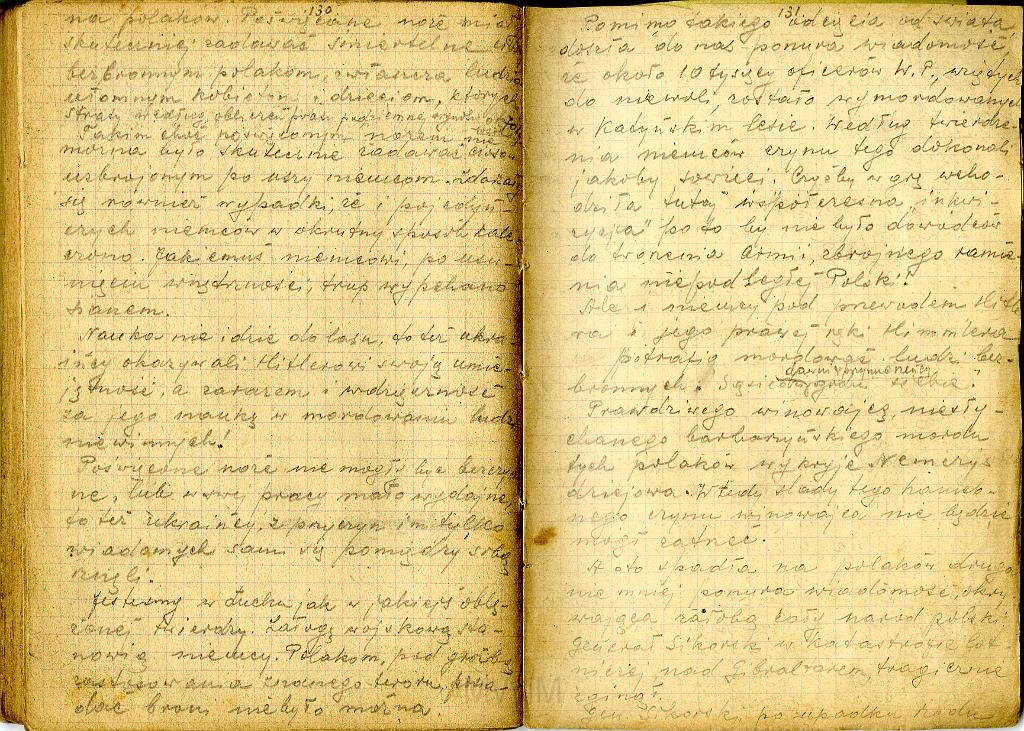 130
na polaków. Poświęcane noże mia
skutecznie zadawać śmiertelne
bezbronnym polakom, zwłaszcza ludzi
ułomnym kobietom i dzieciom, których
straty według obliczeń prasy podziemnej
Takim choć poświęconym nożem nie
można było skutecznie zadawać ciosów
uzbrojonym po uszy niemcom. Zdarzały
się również wypadki, że i pojedyń-
czych niemców w okrutny sposób kale-
czono. Jakiemuś niemcowi, po usu-
nięciu wnętrzności, trup wypchano
sianem.
Nauka nie idzie do lasu, to też ukra-
ińcy okazywali Hitlerowi swoją umie-
jętność, a zarazem i wdzięczność
za jego naukę w mordowaniu ludzi
niewinnych!
Poświęcone noże nie mogły być bezczyn
ne, lub w swej pracy mało wydajne,
to też ukraińcy, z przyczyn im tylko
wiadomych sami się pomiędzy sobą
rżnęli.
Jesteśmy w Łucku jak w jakiejś oblę-
żonej twierdzy. Załogę wojskową sta-
nowią niemcy. Polakom, pod groźbą
zastosowania znanego teroru, posia-
dać broni nie było można.
131
Pomimo takiego odcięcia od świata
doszła do nas ponura wiadomość,
że około 10 tysięcy oficerów W.P., wziętych
do niewoli, zostało wymordowanych
w Katyńskim lesie. Według twierdze-
nia niemców czynu tego dokonali
jakoby sowieci. Czyżby w grę wcho-
dziła tutaj "współczesna inkwi-
zycja" po to by nie było dowódców
do tworzenia Armii, zbrojnego ramie-
nia niepodległej Polski?
Ale i niemcy pod przewodem Hitle
ra i jego prawej ręki Himmlera
potrafią mordować ludzi bez-
dawni sprzymierzeńcy
bronnych. Są siebie!
Prawdziwego winowajcę, niesły-
chanego barbarzyńskiego mordu
tych polaków wykryje Nemezys
dziejowa. Wtedy ślady tego hanieb-
nego czynu winowajca nie będzie
mógł zatrzeć.
A oto spadła na polaków druga
nie mniej ponura wiadomość, okry
wająca żałobą cały naród polski:
Generał Sikorski w katastrofie lot-
niczej, nad Gibraltarem, tragicznie
zginął.
Gen. Sikorski, po upadku rządu